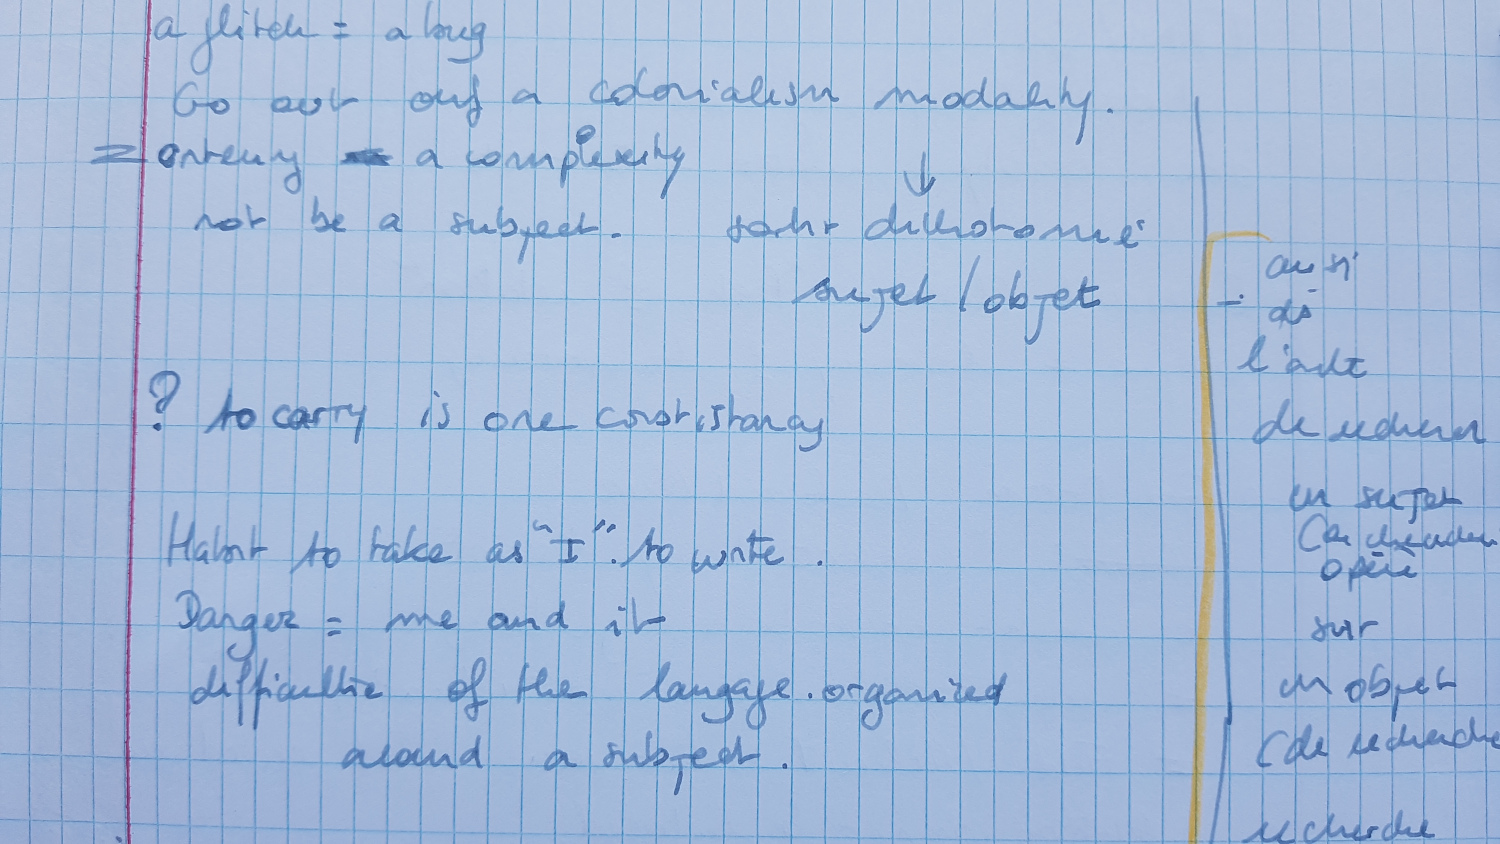 a glitch = a bug
Go out of a colonialism modality.
= a complexity
not be a subject.
↓
sortir dichotomie
sujet / objet
? to carry is one consistancy
Habit to take as "I". to write.
Danger = me and it
difficultie of the langage. organized
around a subject.
aussi
l'acte
de recherche
un sujet
opère
sur
un objet
(de recherche
recherche